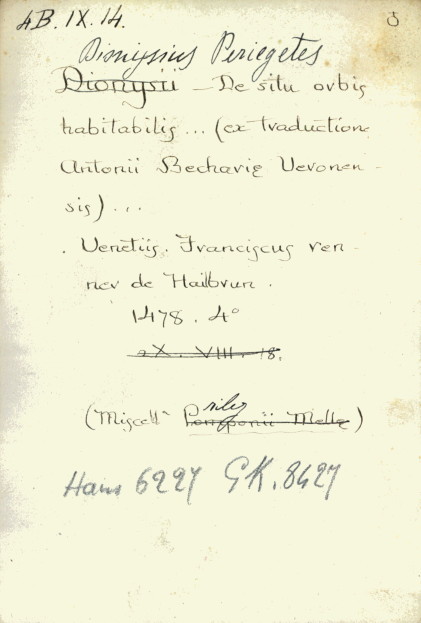 4B. IX. 14.
Dionysius Periegetes
Dionysii - De situ orbis
habitabilis ... (ex traductione
Antonii Becharie Veronen-
sis) ...
. Venetiis. Franciscus ren-
ner de Hailbrun.
1478. 4°
XX. VIII. 18.
(Miscell^a Pomponii Melle)
Hain 6227 GK. 8427